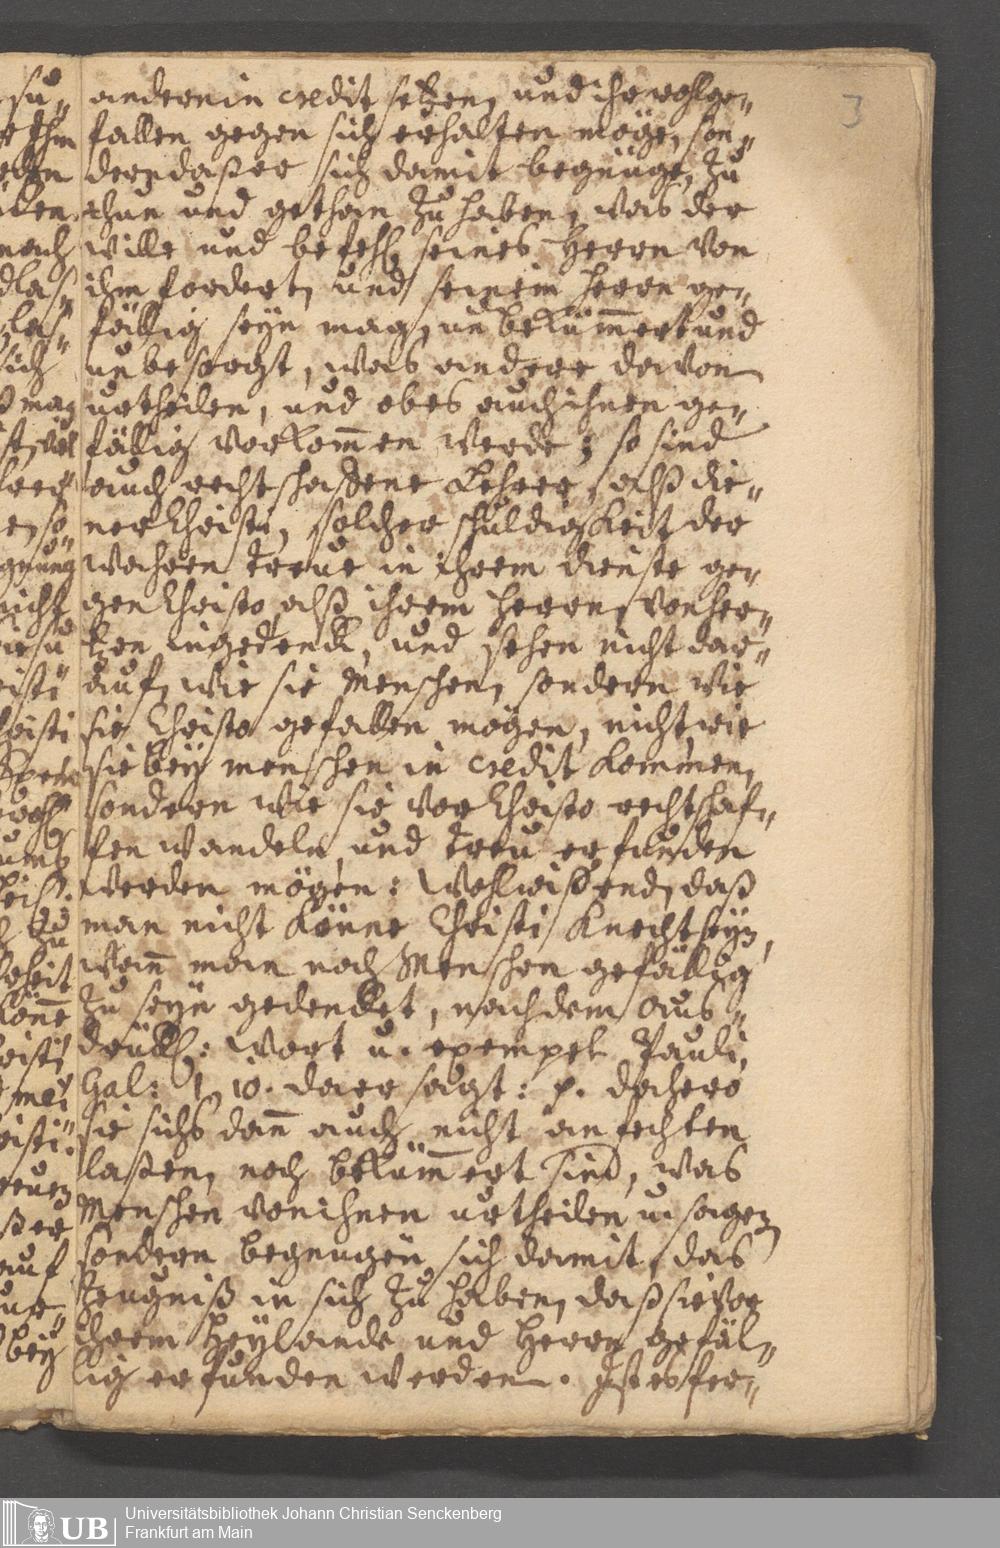 3
andern in credit setzen, und ihr wohlge„
fallen gegen sich erhalten möge, son„
dern daß er sich damit begnüge, zu
thun und gethan zu haben, was der
wille und befehl seines Herrn von
ihm fordert, und seinem Herrn ge„
fällig seyn mag, unbekümmert und
unbesorgt, was andere davon
urtheilen, und ob es auch ihnen ge„
fällig vorkom̄en werde; so sind
auch rechtschaffene Lehrer, alß die„
ner Christi, solcher schuldigkeit der
wahren treue in ihrem dienste ge„
gen Christo, alß ihrem Herrn, von her„
tzen ingedenck, und sehen nicht dar„
auf, wie sie Menschen, sondern wie
sie Christo gefallen mögen, nicht wie
sie bey menschen in credit kommen,
sondern wie sie vor Christo rechtschaf„
fen wandeln, und treu erfunden
werden mögen: Wohlwißend, daß
man nicht könne Christi Knecht seyn,
wan̄ man noch Menschen gefällig
zu seyn gedencket, nach dem aus„
drückl: Wort u. exempel Pauli,
Gal: 1, 10. da er sagt: p. dahero
sie sichs dan̄ auch nicht anfechten
laßen, noch beküm̄ert sind, was
Menschen von ihnen urtheilen u. sagen
sondern begnügen sich damit, das
Zeugniß in sich zu haben, daß sie vor
ihrem Heylande und Herrn gefäl„
lig erfunden werden. Ist es fer„
Universitätsbibliothek Johann Christian Senckenberg
Frankfurt am Main
UB